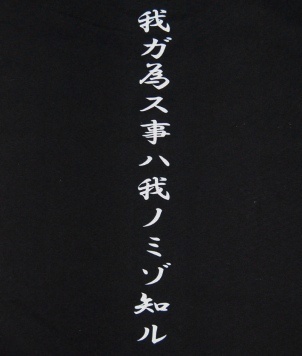 我ガ為ス事ハ我ノミゾ知ル